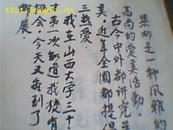 集邮是一种风雅的
高尚的爱美活动，
古今中外都讲究
美，近年全国都提倡
三热爱
我在山西大学三十
第一次知道我校有
会，今天又看到了
展